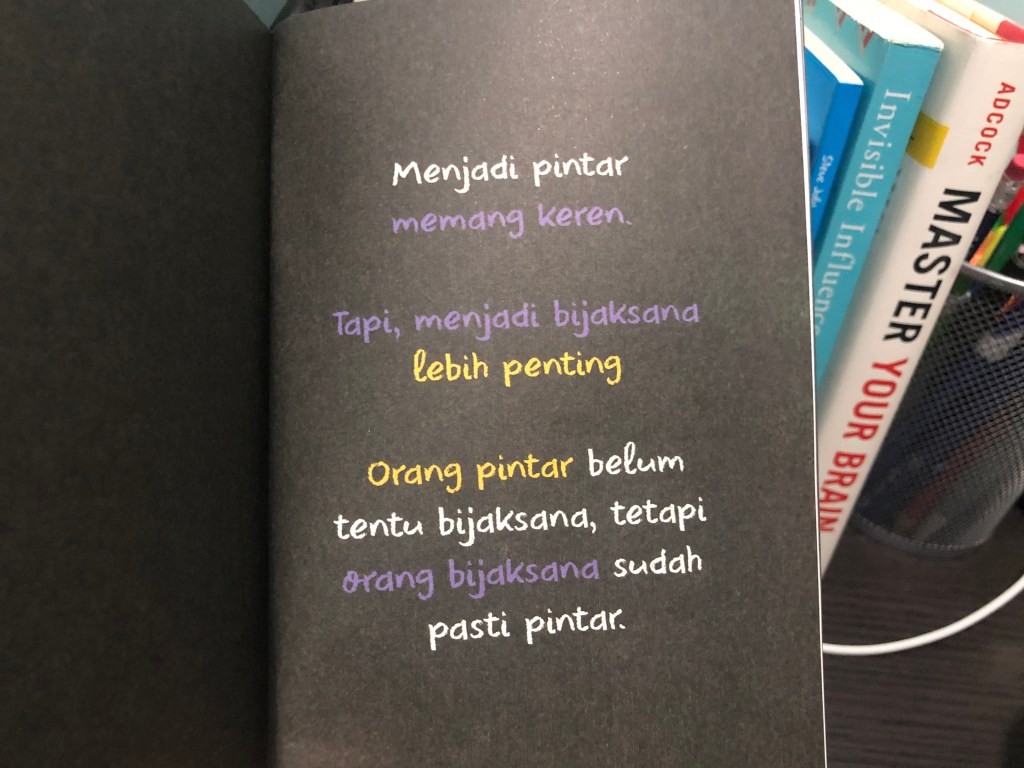 Menjadi pintar
memang keren.
Tapi, menjadi bijaksana
lebih penting
Orang pintar belum
tentu bijaksana, tetapi
orang bijaksana sudah
pasti pintar.
Steve Jobs
Invisible Influence
ADCOCK MASTER YOUR BRAIN